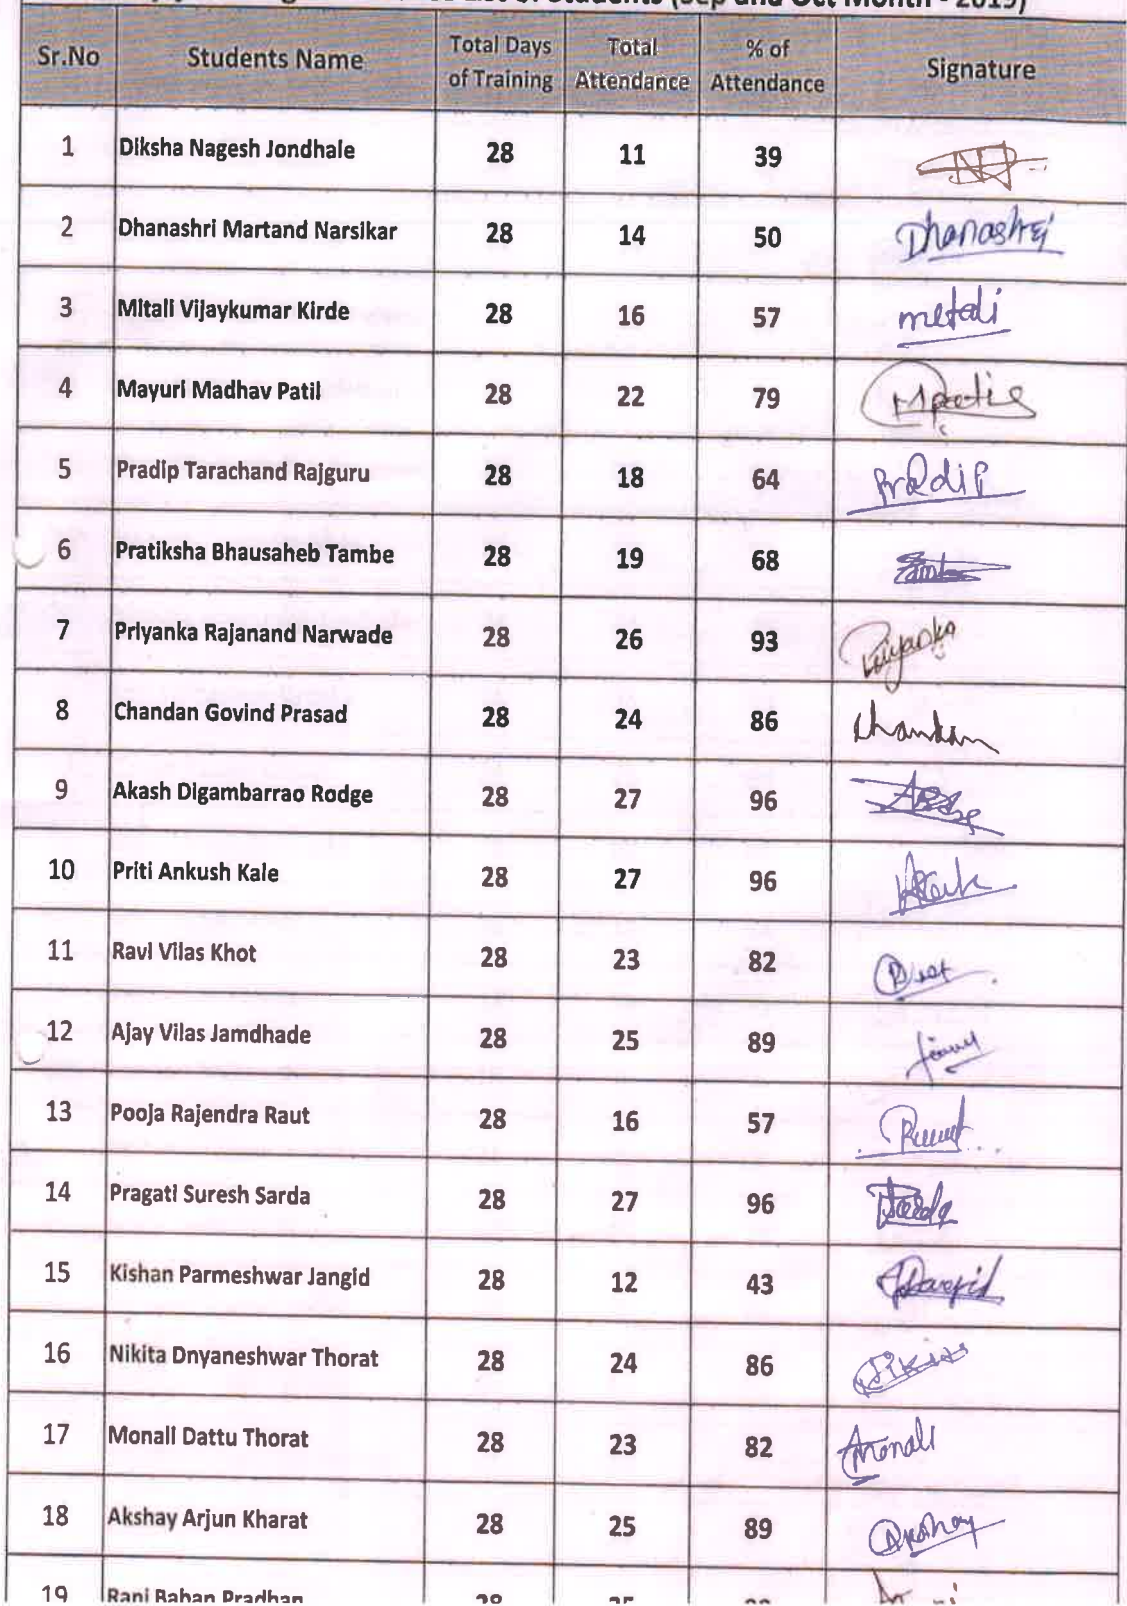 List of Students (Sep and Oct Month - 2019)
Sr.No Students Name Total Days of Training Total Attendance % of Attendance Signature
1 Diksha Nagesh Jondhale 28 11 39
2 Dhanashri Martand Narsikar 28 14 50 Dhanashri
3 Mitali Vijaykumar Kirde 28 16 57 metali
4 Mayuri Madhav Patil 28 22 79 Mpatil
5 Pradip Tarachand Rajguru 28 18 64 Pradip
6 Pratiksha Bhausaheb Tambe 28 19 68
7 Priyanka Rajanand Narwade 28 26 93 Priyanka
8 Chandan Govind Prasad 28 24 86 Chandan
9 Akash Digambarrao Rodge 28 27 96
10 Priti Ankush Kale 28 27 96
11 Ravi Vilas Khot 28 23 82
12 Ajay Vilas Jamdhade 28 25 89
13 Pooja Rajendra Raut 28 16 57
14 Pragati Suresh Sarda 28 27 96
15 Kishan Parmeshwar Jangid 28 12 43
16 Nikita Dnyaneshwar Thorat 28 24 86
17 Monali Dattu Thorat 28 23 82 Monali
18 Akshay Arjun Kharat 28 25 89 Akshay
19 Rani Bahan Pradhan 28 25